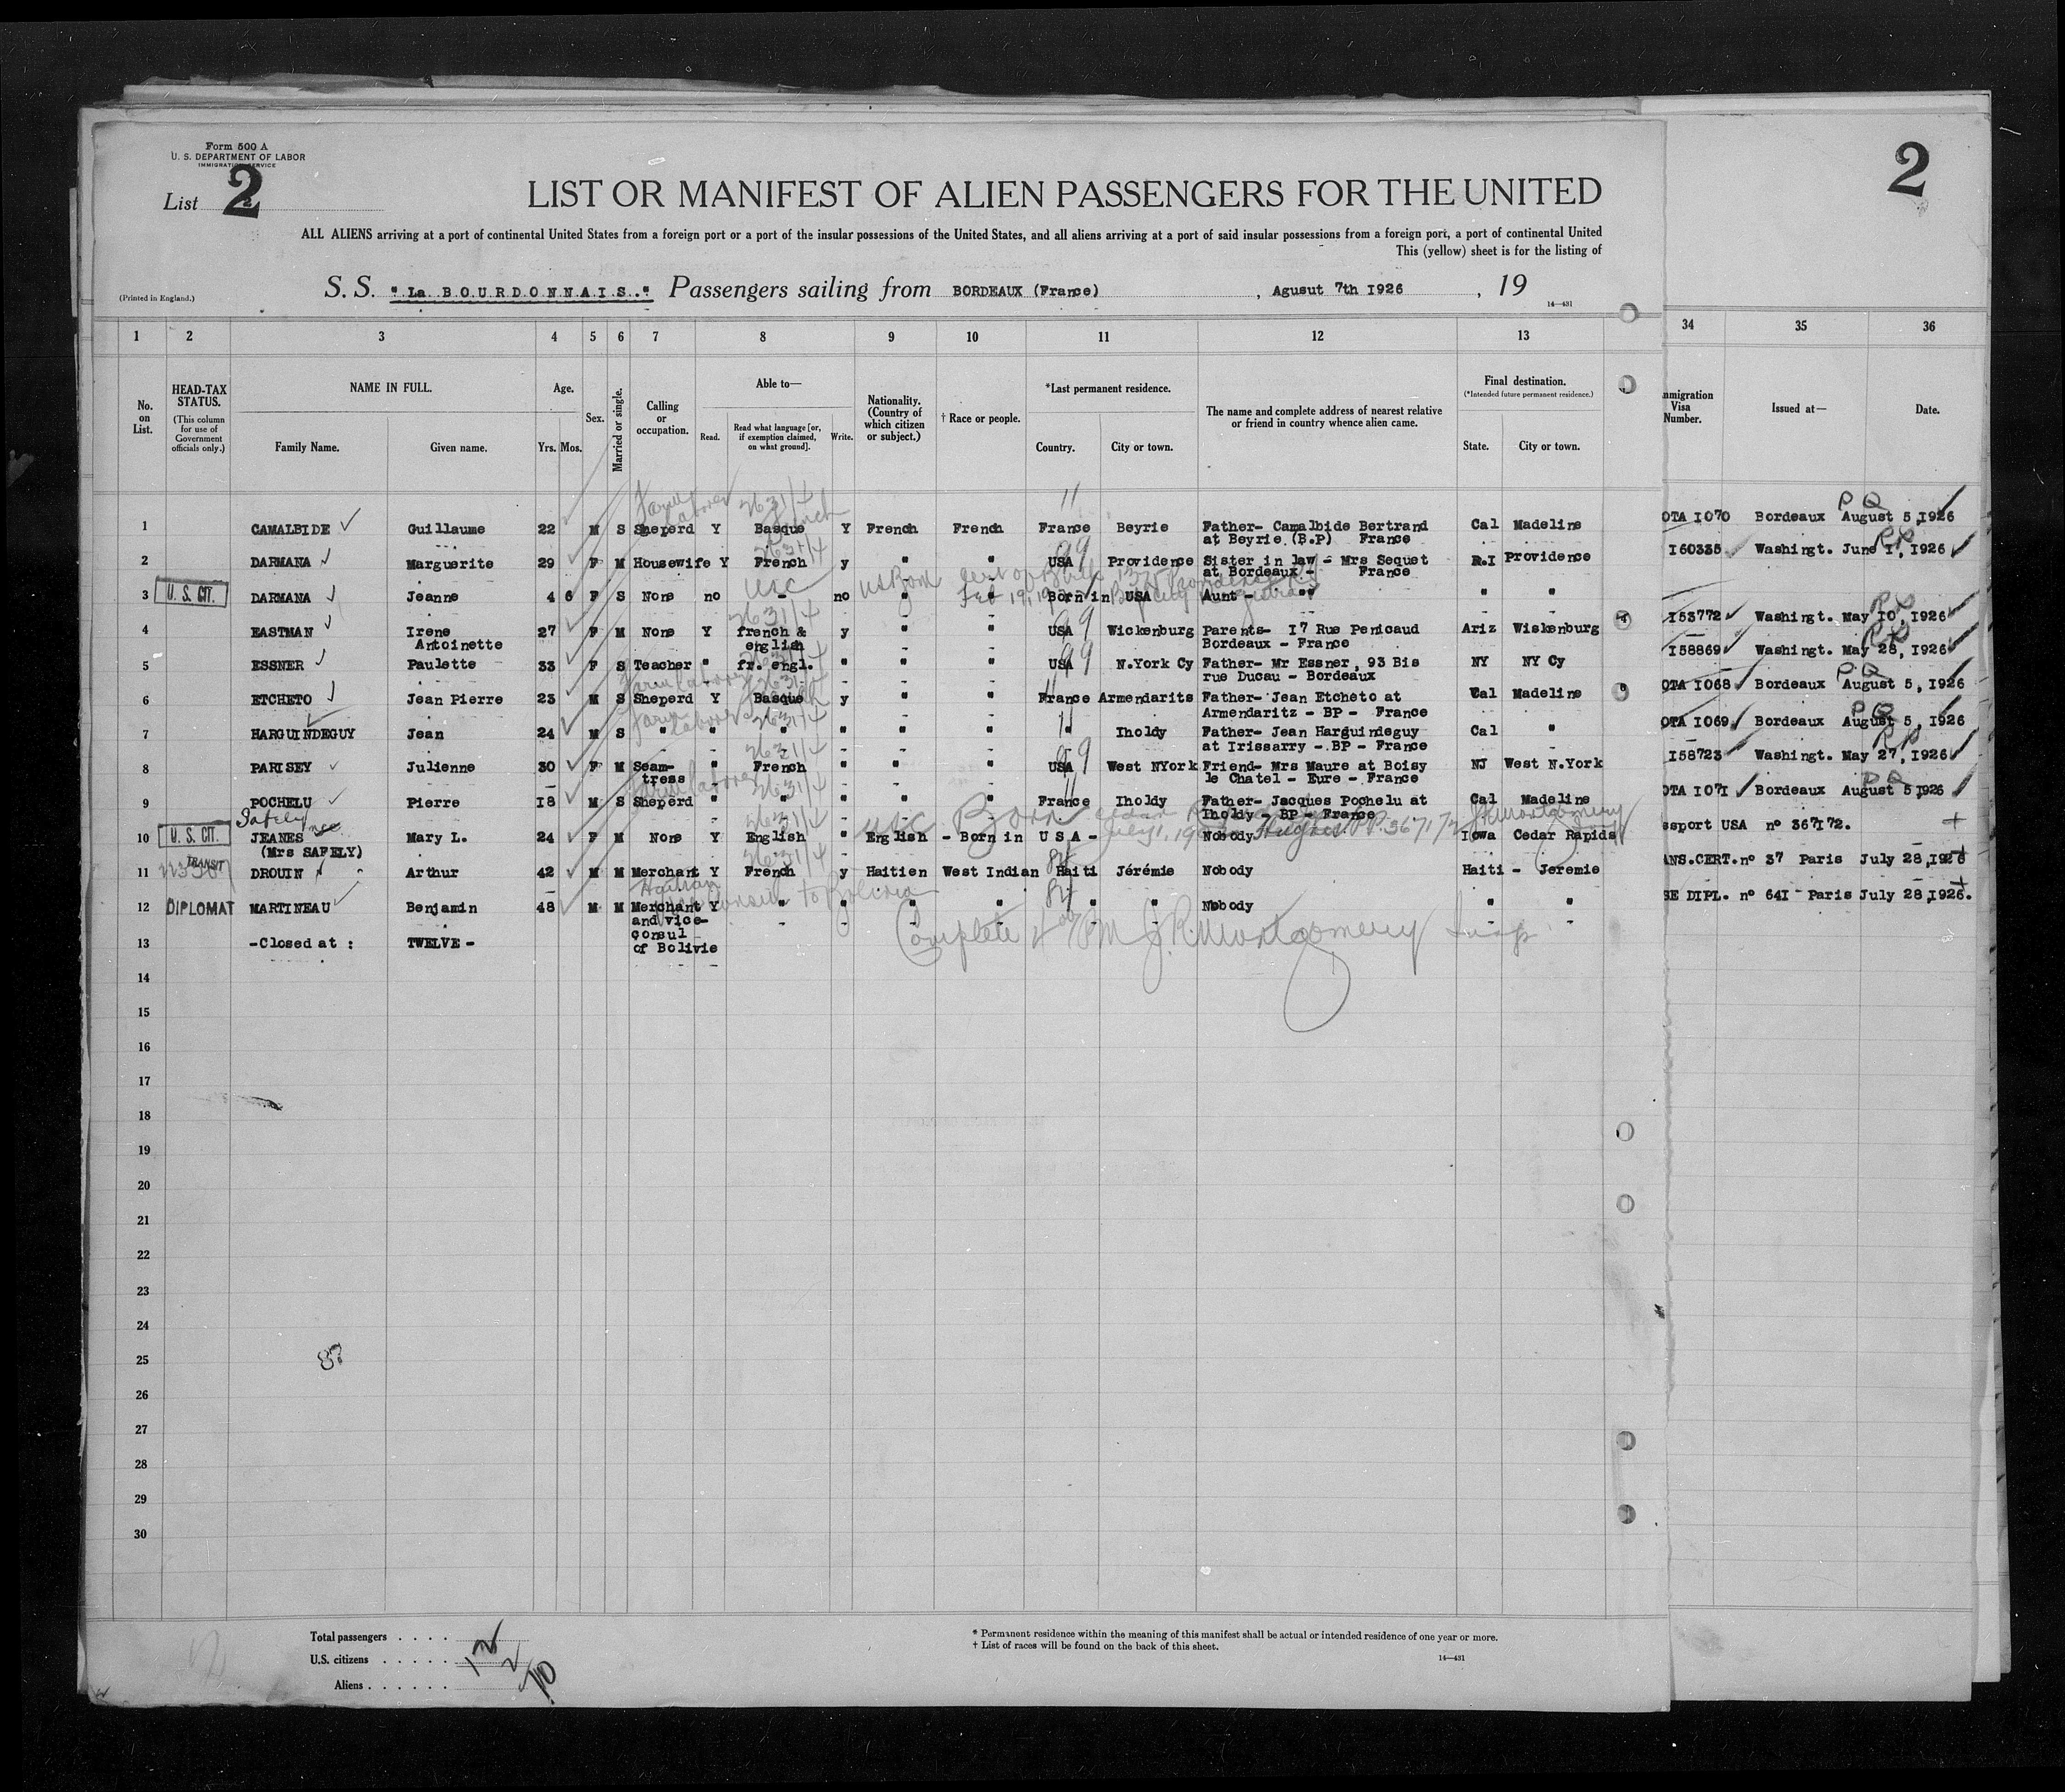 Form 500 A
U. S. DEPARTMENT OF LABOR
IMMIGRATION SERVICE
List 2
2
LIST OR MANIFEST OF ALIEN PASSENGERS FOR THE UNITED
ALL ALIENS arriving at a port of continental United States from a foreign port or a port of the insular possessions of the United States, and all aliens arriving at a port of said insular possessions from a foreign port, a port of continental United
This (yellow) sheet is for the listing of
(Printed in England.)
S. S. "La BOURDONNAIS." Passengers sailing from BORDEAUX (France) , Agusut 7th I926 , 19
14—431
1 2 3 4 5 6 7 8 9 10 11 12 13 34 35 36
No. on List.
HEAD-TAX STATUS.
(This column for use of Government officials only.)
NAME IN FULL.
Family Name. Given name.
Age.
Yrs. Mos.
Sex.
Married or single.
Calling or occupation.
Able to—
Read. Read what language [or, if exemption claimed, on what ground]. Write.
Nationality. (Country of which citizen or subject.)
† Race or people.
*Last permanent residence.
Country. City or town.
The name and complete address of nearest relative or friend in country whence alien came.
Final destination.
(*Intended future permanent residence.)
State. City or town.
mmigration Visa Number.
Issued at—
Date.
1 CAMALBIDE Guillaume 22 M S Sheperd Y Basque Y French French France Beyrie Father- Camalbide Bertrand Cal Madeline OTA I070 Bordeaux August 5,I926
at Beyrie (B.P) France
2 DARMANA Marguerite 29 F M Housewife Y French y " " USA Providence Sister in law - Mrs Sequet R.I Providence I60335 Washingt. June I, I926
at Bordeaux - France
3 U. S. CIT. DARMANA Jeanne 4 6 F S None no - no " " Born in USA Aunt - "" " "
4 EASTMAN Irene 27 F M None Y french & y " " USA Wickenburg Parents- I7 Rue Penicaud Ariz Wiskenburg I53772 Washingt. May I0, I926
Antoinette english Bordeaux - France
5 ESSNER Paulette 33 F S Teacher " fr. engl. " " " USA N.York Cy Father- Mr Essner, 93 Bis NY NY Cy I58869 Washingt. May 28, I926
rue Ducau - Bordeaux
6 ETCHETO Jean Pierre 23 M S Sheperd Y Basque y " " France Armendarits Father- Jean Etcheto at Cal Madeline OTA I068 Bordeaux August 5, I926
Armendaritz - BP - France
7 HARGUINDEGUY Jean 24 M S " " " " " " " Iholdy Father- Jean Harguindeguy Cal " OTA I069 Bordeaux August 5, I926
at Irissarry - BP - France
8 PARISEY Julienne 30 F M Seam- " French " " " USA West NYork Friend- Mrs Maure at Boisy NJ West N.York I58723 Washingt. May 27, I926
tress le Chatel - Eure - France
9 POCHELU Pierre I8 M S Sheperd " " " " " France Iholdy Father- Jacques Pochelu at Cal Madeline OTA I07I Bordeaux August 5 I926
Iholdy - BP - France
Safely
10 U. S. CIT. JEANES nee Mary L. 24 F M None Y English " English - Born in U S A - Nobody Iowa Cedar Rapids ssport USA n° 367I72.
(Mrs SAFELY)
TRANSIT
11 DROUIN Arthur 42 M M Merchant Y French y Haitien West Indian Haiti Jérémie Nobody Haiti - Jeremie ANS.CERT.n° 37 Paris July 28,I926
12 DIPLOMAT MARTINEAU Benjamin 48 M M Merchant Y " " " " " " Nobody " " SE DIPL. n° 64I - Paris July 28,I926.
and vice-
consul
of Bolivie
13 -Closed at : TWELVE -
Complete 4 00 PM J R Montgomery Insp
14
15
16
17
18
19
20
21
22
23
24
25
26
27
28
29
30
Total passengers . . . . 12
U.S. citizens . . . . . 2
Aliens . . . . . . 10
* Permanent residence within the meaning of this manifest shall be actual or intended residence of one year or more.
† List of races will be found on the back of this sheet.
14—431